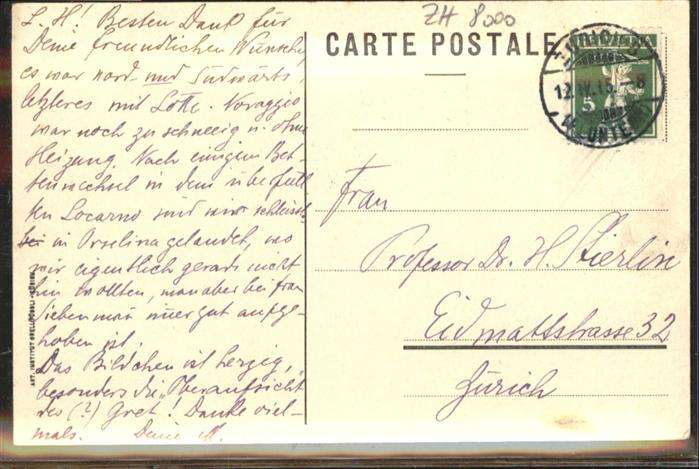 ZH 8000
CARTE POSTALE
HELVETIA
5
ZÜRICH
12.IV.15. – 8
FLUNTE
L. H! Besten Dank für
Deine freundlichen Wünsche,
es war nord- und südwärts,
letzteres mit Lotte.
war noch zu schneeig u. ohne
Heizung. Nach einigem Bet-
tenwechsel in dem überfüll-
ten Locarno sind wir schliessl.
in Orselina gelandet, wo
wir eigentlich gerade nicht
hin wollten, man aber bei Frau
immer gut aufge-
hoben ist.
Das Bildchen ist herzig,
besonders die „Oberaufsicht
des (?) Gret! Danke viel-
mals. Deine M.
Frau
Professor Dr. H. Stierlin
Eidmattstrasse 32
Zürich
ART. INSTITUT ORELL FÜSSLI - ZÜRICH